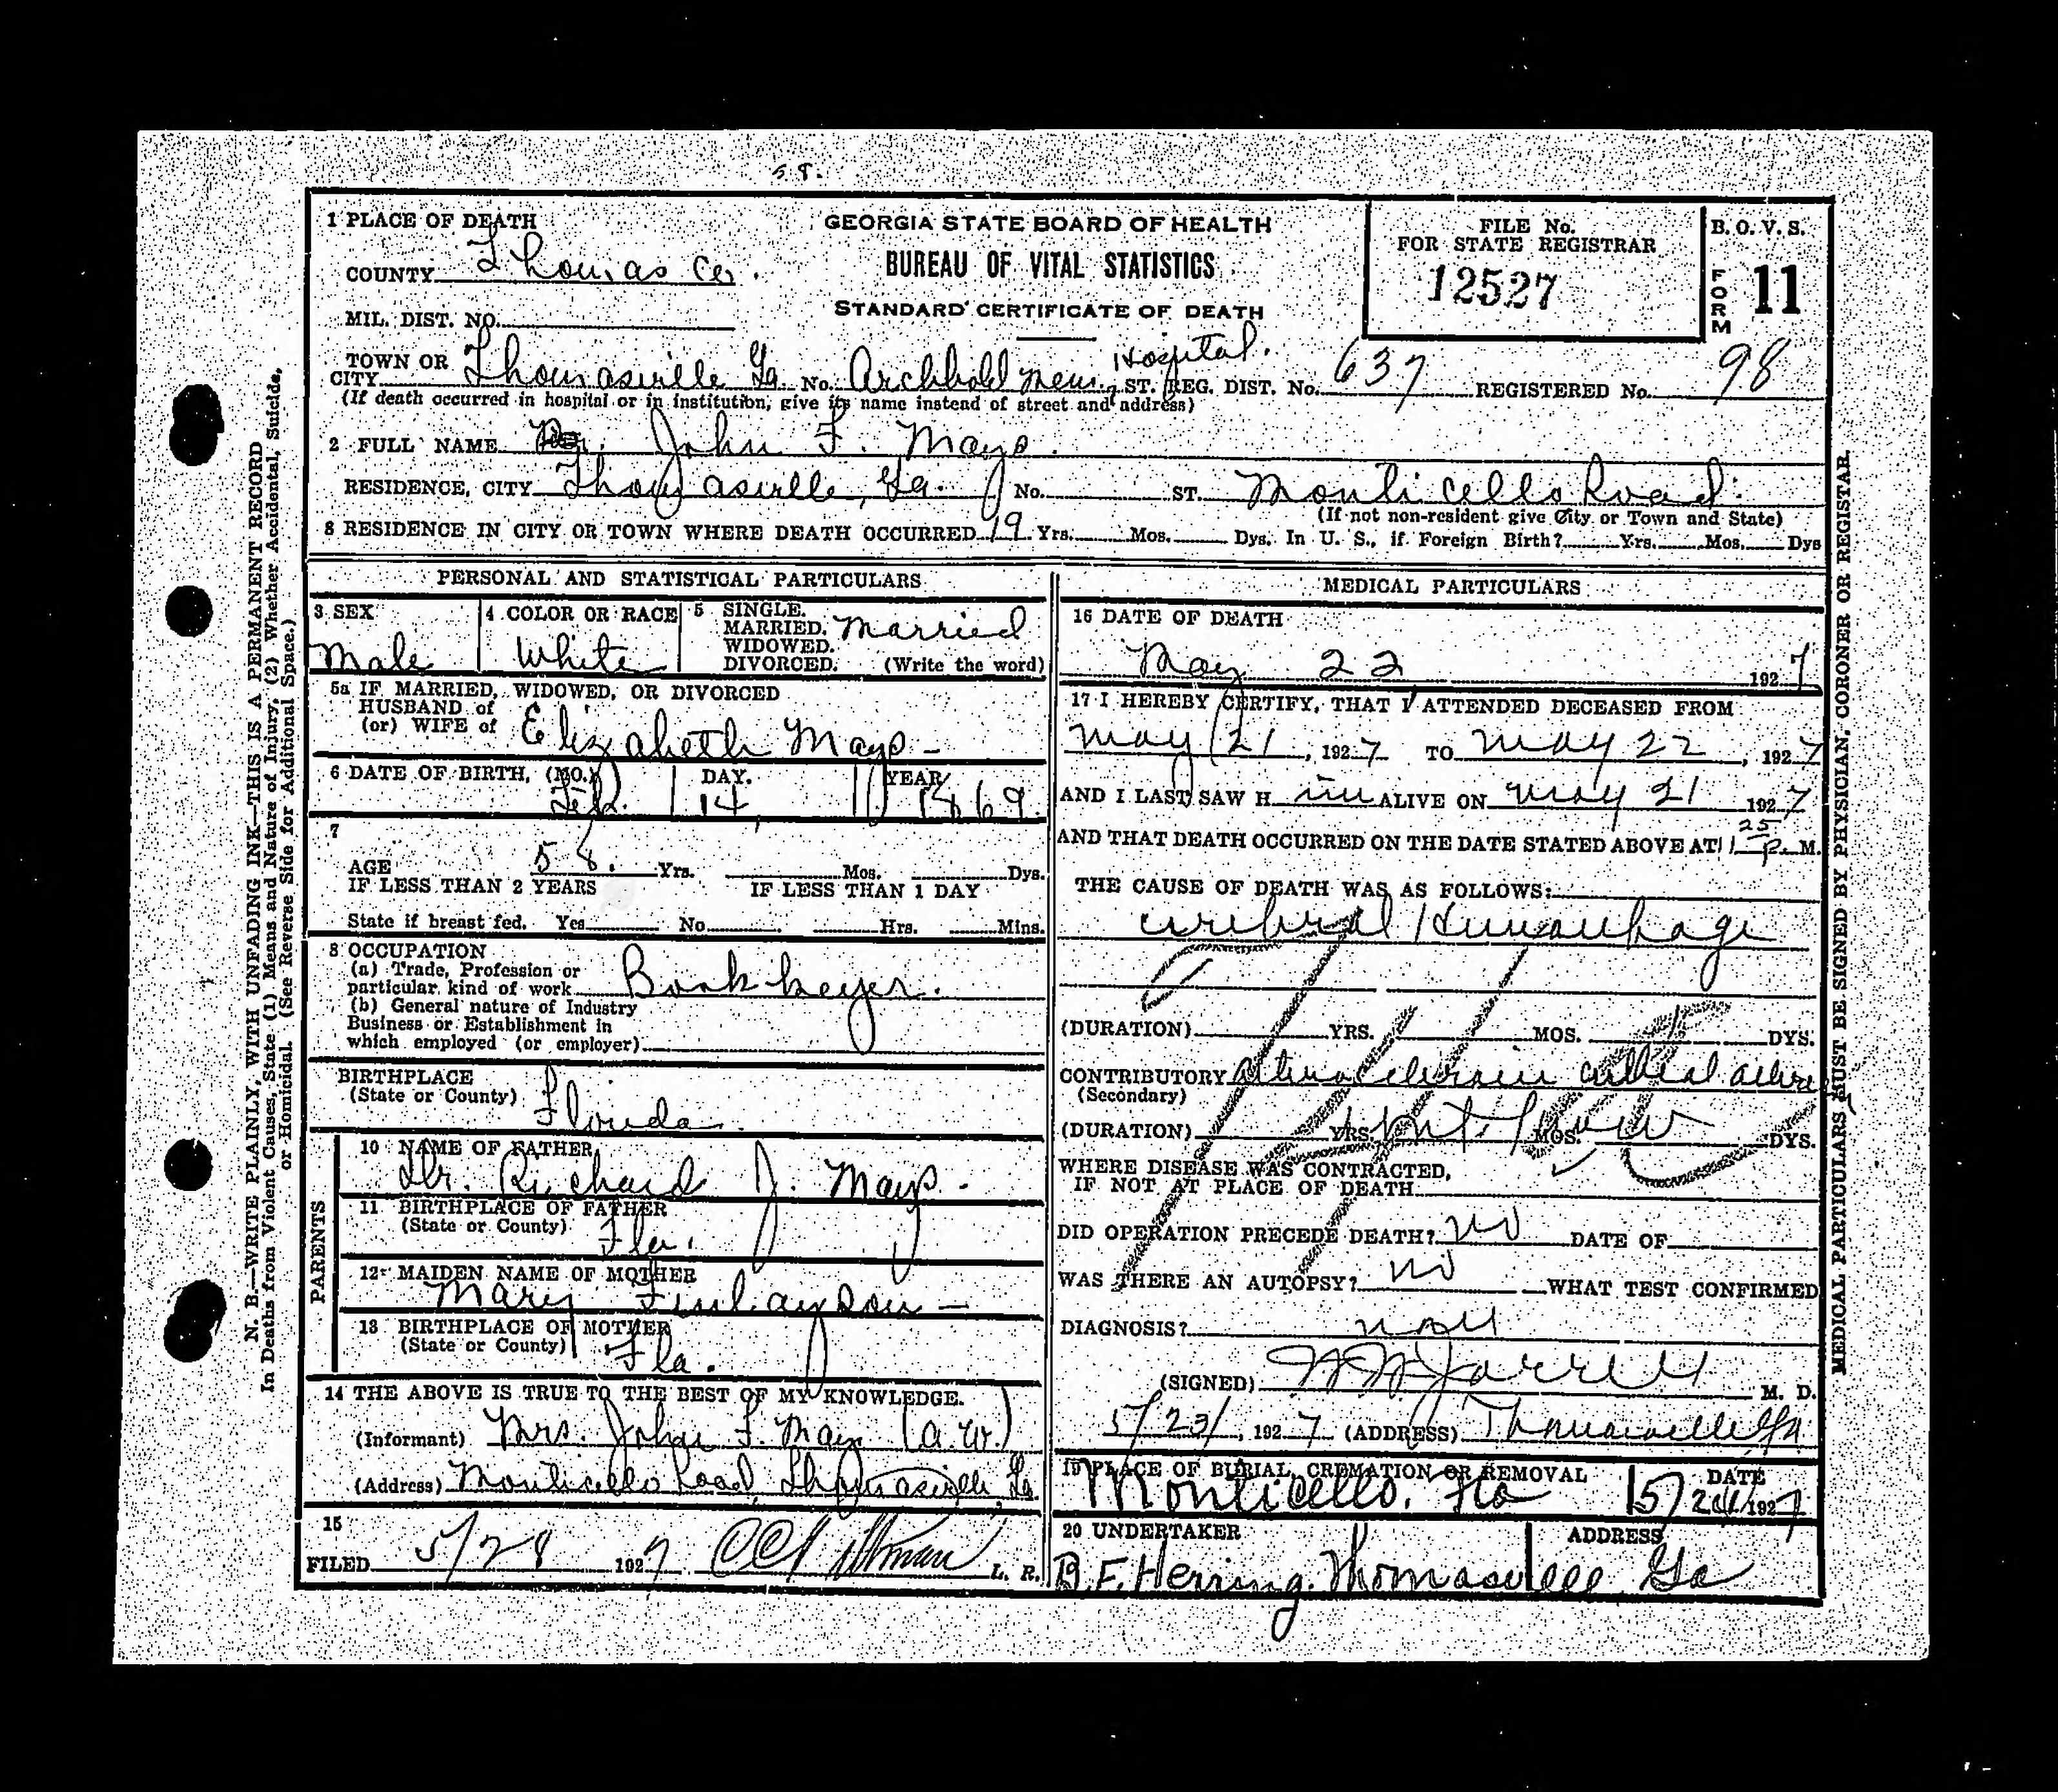 58.
1 PLACE OF DEATH
COUNTY Thomas Co.
MIL. DIST. NO.
GEORGIA STATE BOARD OF HEALTH
BUREAU OF VITAL STATISTICS
STANDARD CERTIFICATE OF DEATH
FILE No.
FOR STATE REGISTRAR
12527
B. O. V. S.
FORM 11
TOWN OR CITY Thomasville Ga. No. Archbold Mem. Hospital. ST. REG. DIST. No. 637 REGISTERED No. 98
(If death occurred in hospital or in institution, give its name instead of street and address)
2 FULL NAME John F. Mays.
RESIDENCE, CITY Thomasville, Ga. No. ST. Monticello Road.
(If not non-resident give City or Town and State)
8 RESIDENCE IN CITY OR TOWN WHERE DEATH OCCURRED 19 Yrs. Mos. Dys. In U. S., if Foreign Birth? Yrs. Mos. Dys
PERSONAL AND STATISTICAL PARTICULARS
3 SEX
Male
4 COLOR OR RACE
White
5 SINGLE.
MARRIED.
WIDOWED.
DIVORCED. (Write the word)
Married
5a IF MARRIED, WIDOWED, OR DIVORCED
HUSBAND of
(or) WIFE of Elizabeth Mays -
6 DATE OF BIRTH, (MO.) DAY. YEAR
Feb. 14, 1869.
7
AGE 58. Yrs. Mos. Dys.
IF LESS THAN 2 YEARS IF LESS THAN 1 DAY
State if breast fed. Yes No Hrs. Mins.
8 OCCUPATION
(a) Trade, Profession or
particular kind of work Bookkeeper.
(b) General nature of Industry
Business or Establishment in
which employed (or employer)
BIRTHPLACE
(State or County) Florida.
PARENTS
10 NAME OF FATHER
Dr. Richard J. Mays.
11 BIRTHPLACE OF FATHER
(State or County) Fla.
12 MAIDEN NAME OF MOTHER
Mary Finlayson -
13 BIRTHPLACE OF MOTHER
(State or County) Fla.
14 THE ABOVE IS TRUE TO THE BEST OF MY KNOWLEDGE.
(Informant) Mrs. John F. Mays (a.w.)
(Address) Monticello Road, Thomasville, Ga
15
FILED 5/28 1927 L. R.
MEDICAL PARTICULARS
16 DATE OF DEATH
May 22 1927
17 I HEREBY CERTIFY, THAT I ATTENDED DECEASED FROM
May 21, 1927 TO May 22, 1927
AND I LAST SAW H im ALIVE ON May 21 1927
AND THAT DEATH OCCURRED ON THE DATE STATED ABOVE AT 1 25 P. M.
THE CAUSE OF DEATH WAS AS FOLLOWS:
Cerebral Hemorrhage
(DURATION) YRS. MOS. DYS.
CONTRIBUTORY
(Secondary)
(DURATION) YRS. MOS. DYS.
WHERE DISEASE WAS CONTRACTED,
IF NOT AT PLACE OF DEATH
DID OPERATION PRECEDE DEATH? no DATE OF
WAS THERE AN AUTOPSY? no WHAT TEST CONFIRMED
DIAGNOSIS?
(SIGNED) Jarrell M. D.
5/23/, 1927 (ADDRESS) Thomasville Ga
19 PLACE OF BURIAL, CREMATION OR REMOVAL DATE
Monticello. Fla 5/24/1927
20 UNDERTAKER ADDRESS
B. F. Herring. Thomasville Ga
N. B.—WRITE PLAINLY, WITH UNFADING INK—THIS IS A PERMANENT RECORD
In Deaths from Violent Causes, State (1) Means and Nature of Injury, (2) Whether Accidental, Suicide,
or Homicidal. (See Reverse Side for Additional Space.)
MEDICAL PARTICULARS MUST BE SIGNED BY PHYSICIAN, CORONER OR REGISTAR.